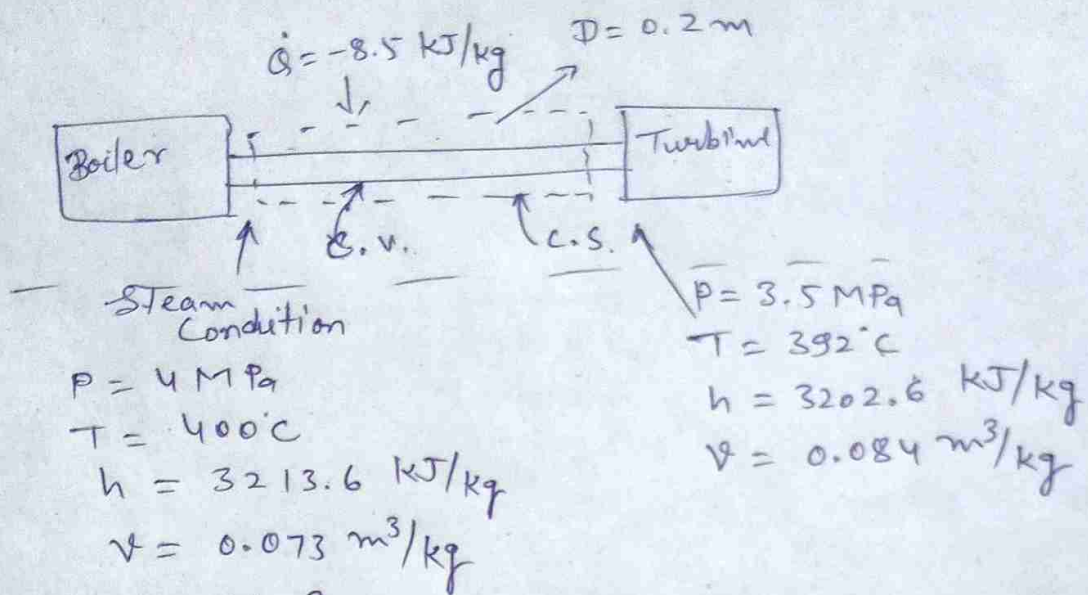 Q̇ = -8.5 KJ/kg
D = 0.2 m
Boiler
Turbine
C.V.
C.S.
Steam
Condition
P = 4 MPa
T = 400°C
h = 3213.6 KJ/kg
v = 0.073 m³/kg
P = 3.5 MPa
T = 392°C
h = 3202.6 KJ/kg
v = 0.084 m³/kg